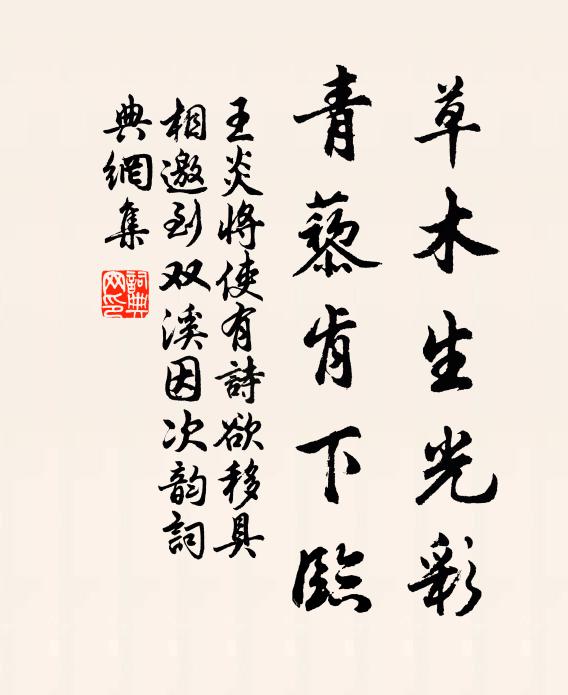 草木生光彩
青藜肯下臨
王炎將使有詩欲移具
相邀到双溪因次韵詞
典網集
詞典网印